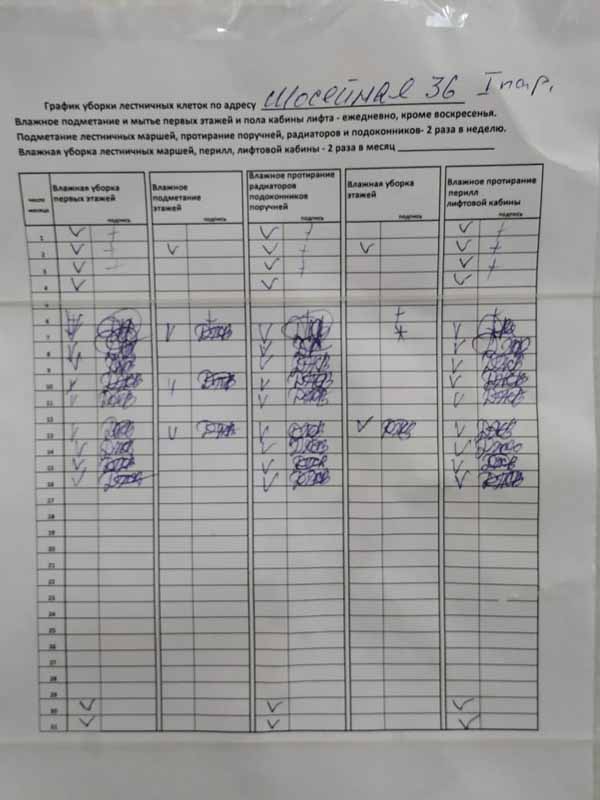 График уборки лестничных клеток по адресу Шосейная 36 I пар.
Влажное подметание и мытье первых этажей и пола кабины лифта - ежедневно, кроме воскресенья.
Подметание лестничных маршей, протирание поручней, радиаторов и подоконников- 2 раза в неделю.
Влажная уборка лестничных маршей, перилл, лифтовой кабины - 2 раза в месяц
число месяца
Влажная уборка первых этажей
подпись
Влажное подметание этажей
подпись
Влажное протирание радиаторов подоконников поручней
подпись
Влажная уборка этажей
подпись
Влажное протирание перилл лифтовой кабины
подпись
1
2
3
4
5
6
7
8
9
10
11
12
13
14
15
16
17
18
19
20
21
22
23
24
25
26
27
28
29
30
31